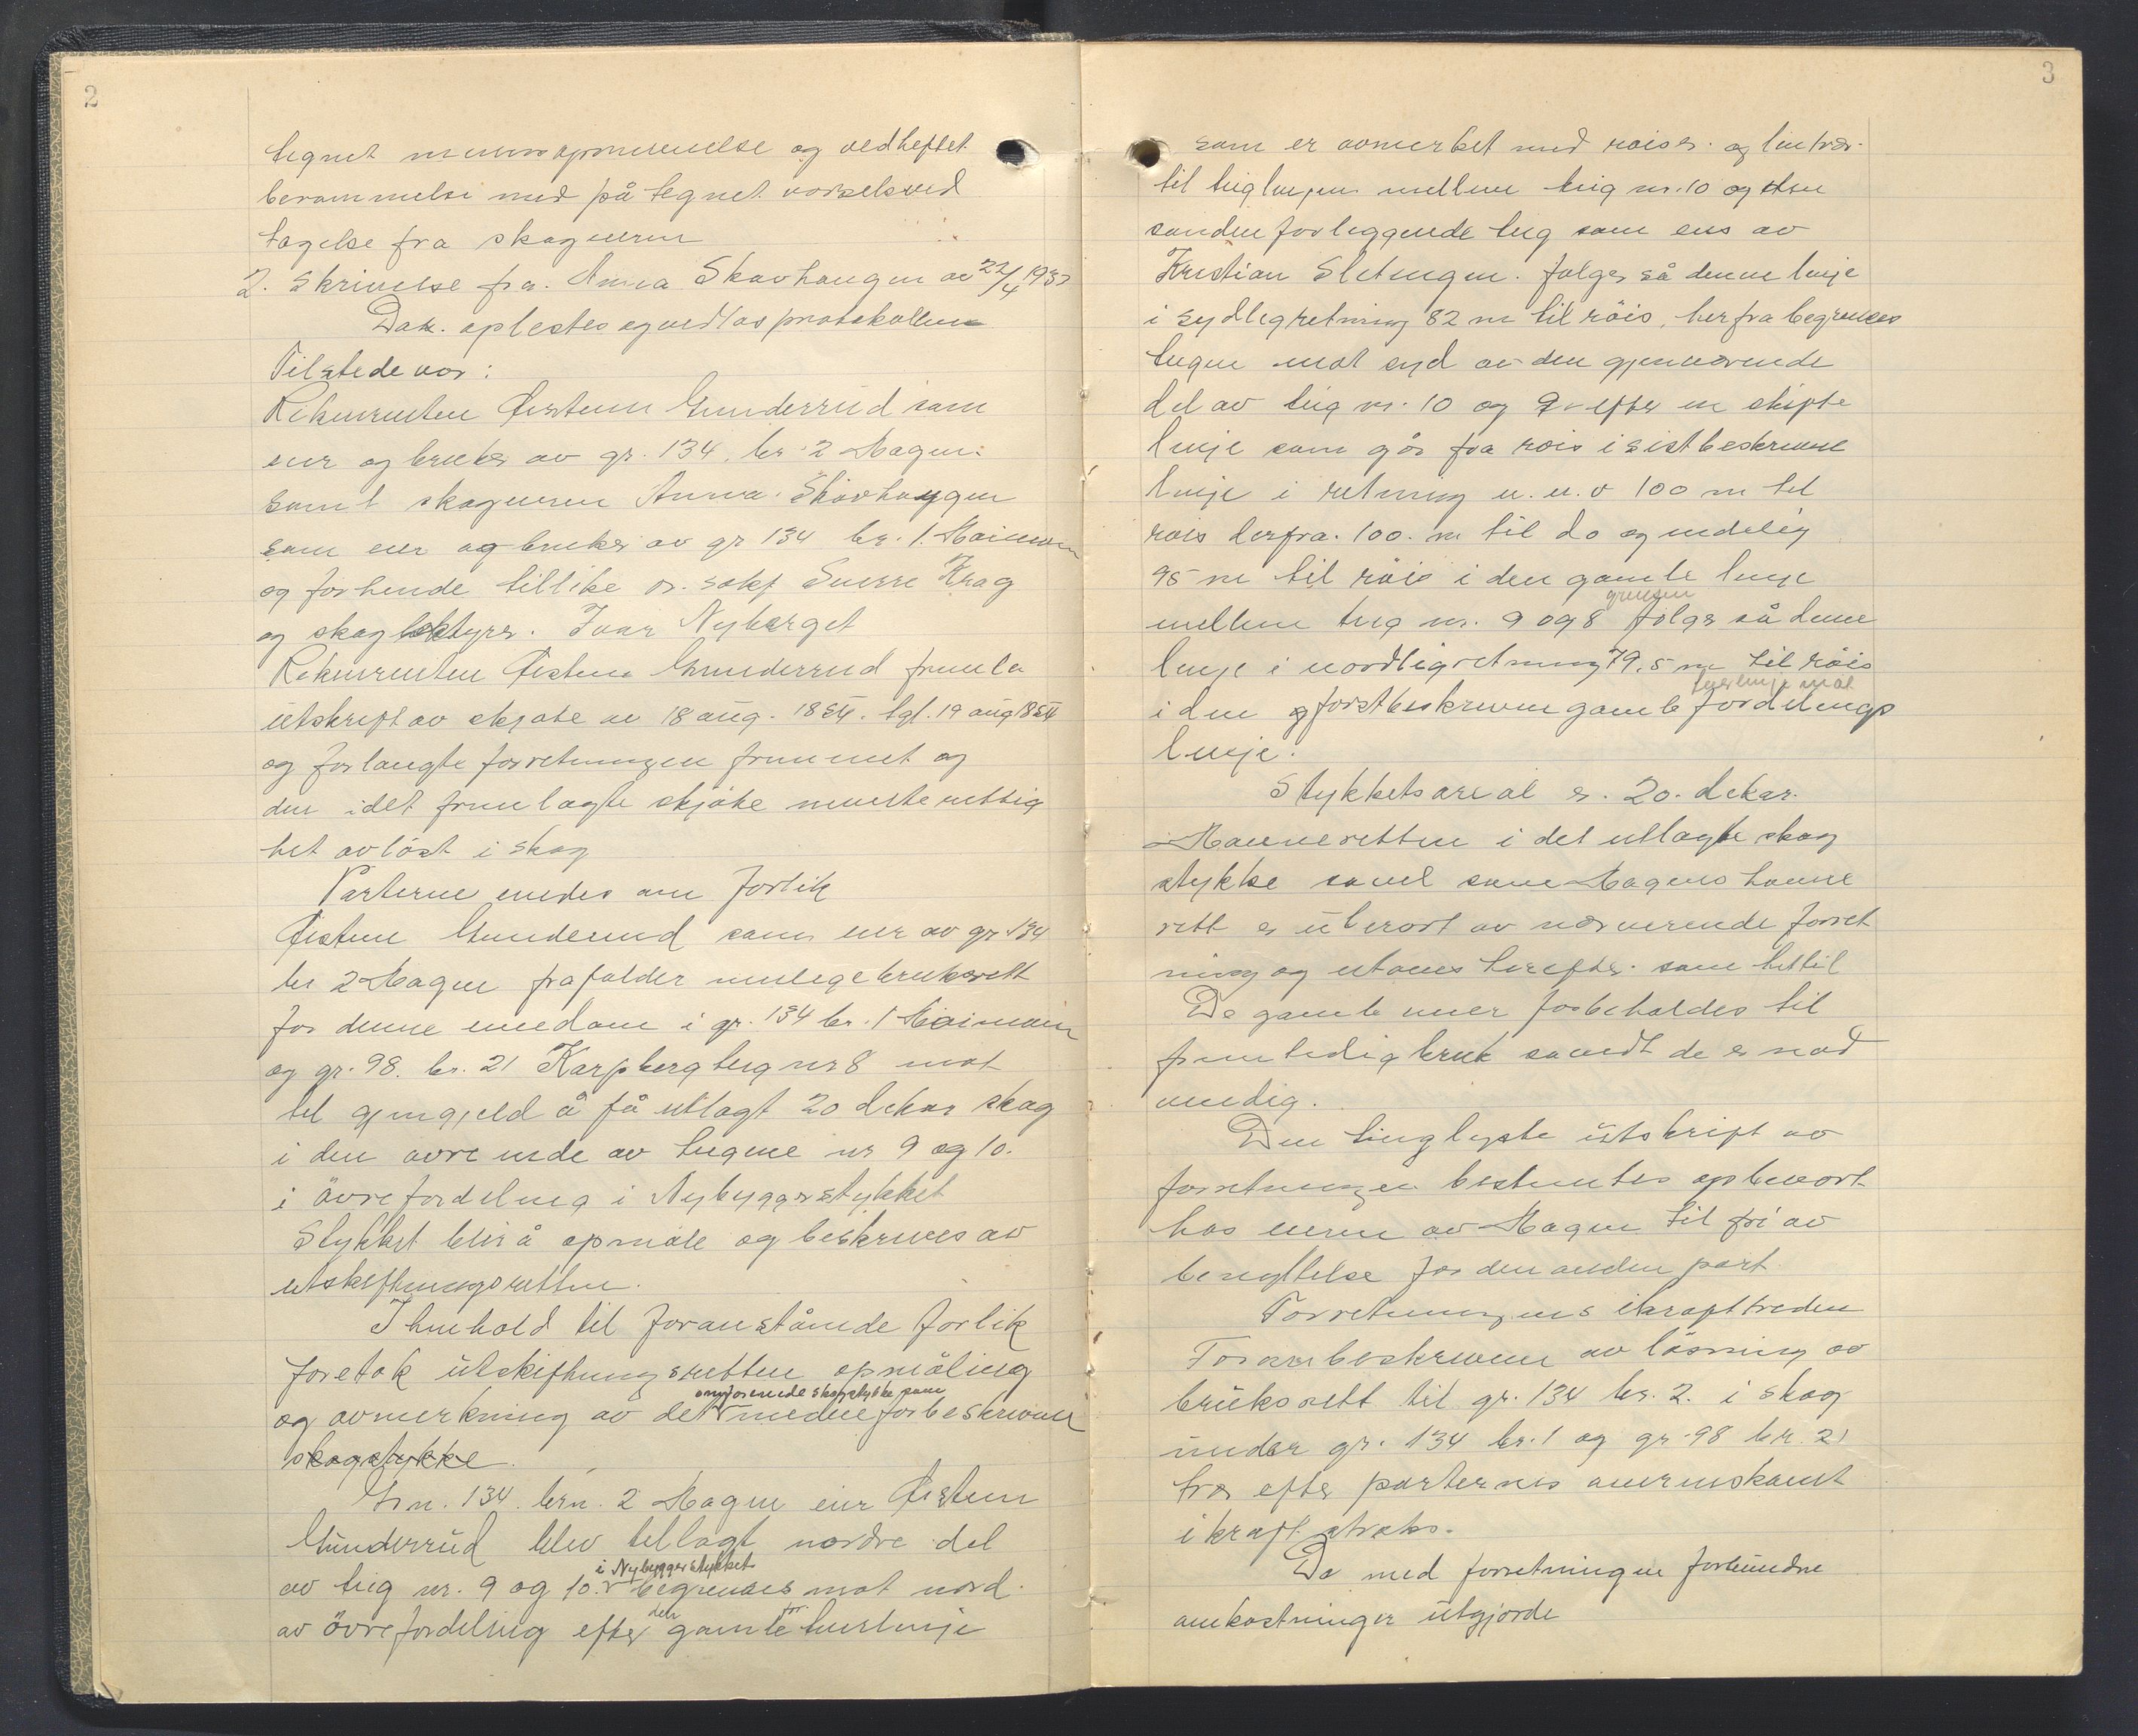 2
tegnet mennsopnevnelse og vedheftet
berammelse med påtegnet varselsved
tagelse fra skogeieren
2. Skrivelse fra Anna Skovhaugen av 22/4 193
Dok. oplestes og vedlas protokollen
Tilstede var:
Rekvirenten Øistein Gunderrud som
eier og bruker av gr. 134, br. 2 Hagen
samt skogeieren Anna Skovhaugen
som eier og bruker av gr 134 br. 1
og for hende tillike or. sakf Sverre Krag
og skogbestyrer Ivar Nyberget
Rekvirenten Øistein Gunderrud fremla
utskrift av skjøte av 18 aug. 1854. tgl. 19 aug 1854
og forlangte forretningen fremmet og
den i det fremlagte skjøte nevnte rettig
het avløst i skog
Parterne enedes om forlik
Øistein Gunderrud som eier av gr 134
br 2 Hagen frafalder mulige bruksrett
for denne eiendom i gr. 134 br. 1
og gr. 98. br. 21 Karpberg teig nr 8 mot
til gjengjeld å få utlagt 20 dekar skog
i den øvre ende av teigene nr 9 og 10.
i övre fordeling i Nybyggerstykket
Stykket blir å opmåle og beskrives av
utskiftningsretten.
I henhold til foranstående forlik
foretok utskiftningsretten opmåling
og avmerkning av det omforenede skogstykke som nedenfor beskrevne
skogstykke.
Grn. 134. brn. 2 Hagen eier Øistein
Gunderrud blev tillagt nordre del
av teig nr. 9 og 10. i Nybyggerstykket begrenses mot nord
av övre fordeling efter den gamle linje
3
som er avmerket med röiser og
til teiglinjen mellem teig nr. 10 og den
sønden forleggende teig som eies av
Kristian Sletengen. følger så denne linje
i sydlig retning 82 m til röis, herfra begrenses
teigene mot syd av den gjenværende
del av teig nr. 10 og 9 efter en skifte
linje som går fra röis i sistbeskrevne
linje i retning n. n. v 100 m til
röis derfra 100 m til do og endelig
95 m til röis i den gamle linje
mellem teig nr. 9 og 8 grensen følger så denne
linje i nordlig retning 79,5 m til röis
i den forstbeskrevne gamle fordelings
linje.
Stykkets areal er. 20. dekar.
Havneretten i det utlagte skog
stykke såvel som Hagens havne
rett er uberørt av nærværende forret
ning og utøves herefter som hittil
De gamle veier forbeholdes til
fremtidig bruk såvidt de er nød
vendig.
Den tinglyste utskrift av
forretningen bestemtes opbevart
hos eieren av Hagen til fri av
benyttelse for den anden part.
Forretningens ikrafttreden
Foranbeskrevne avløsning av
bruksrett til gr. 134 br. 2. i skog
under gr. 134 br. 1 og gr. 98 br. 21
trær efter parternes overenskomst
i kraft straks.
De med forretningen forbundne
omkostninger utgjorde